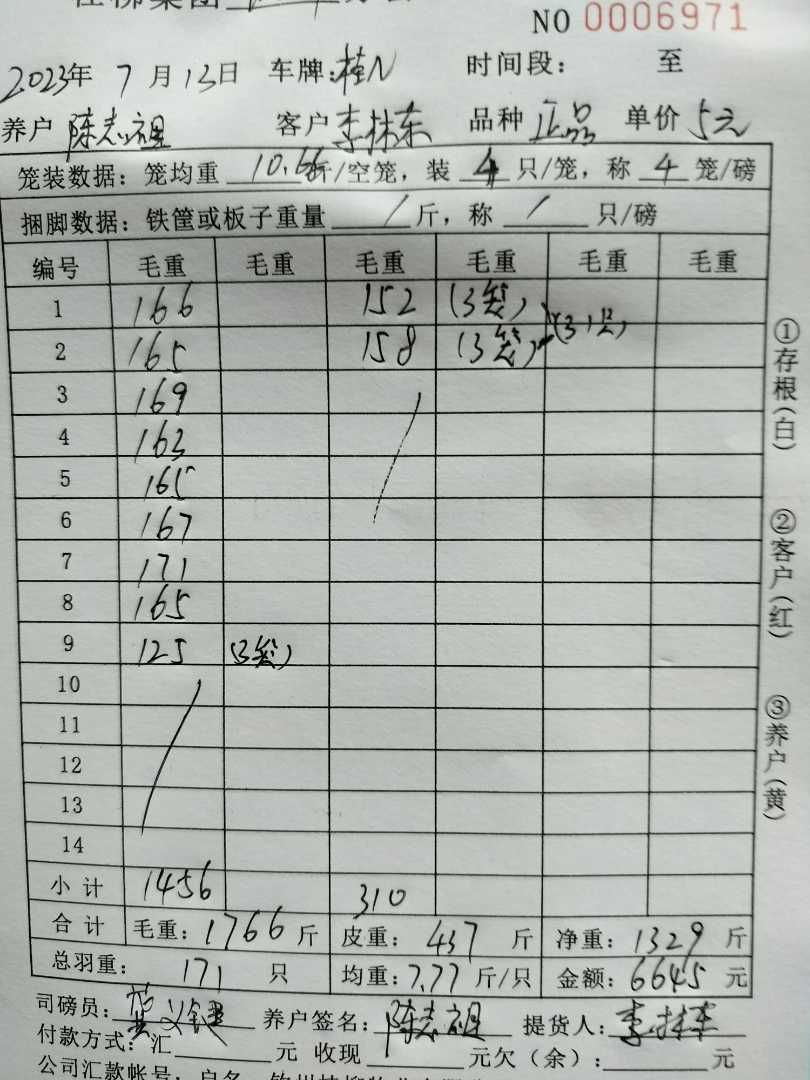 NO 0006971
2023年 7 月 13日 车牌:桂N 时间段: 至
养户 陈志祖 客户 李林东 品种 正品 单价 5元
笼装数据: 笼均重 10.66斤/空笼, 装 4 只/笼, 称 4 笼/磅
捆脚数据: 铁筐或板子重量 / 斤, 称 / 只/磅
编号 毛重 毛重 毛重 毛重 毛重 毛重
1 166 152 (3笼)
2 165 158 (3笼) (31只)
3 169
4 163
5 165
6 167
7 171
8 165
9 125 (3笼)
10
11
12
13
14
小计 1456 310
合计 毛重: 1766 斤 皮重: 437 斤 净重: 1329 斤
总羽重: 171 只 均重: 7.77 斤/只 金额: 6645 元
司磅员: 养户签名: 陈志祖 提货人: 李林东
付款方式: 汇 元 收现 元欠(余): 元
公司汇款帐号: 户名
①存根(白)
②客户(红)
③养户(黄)